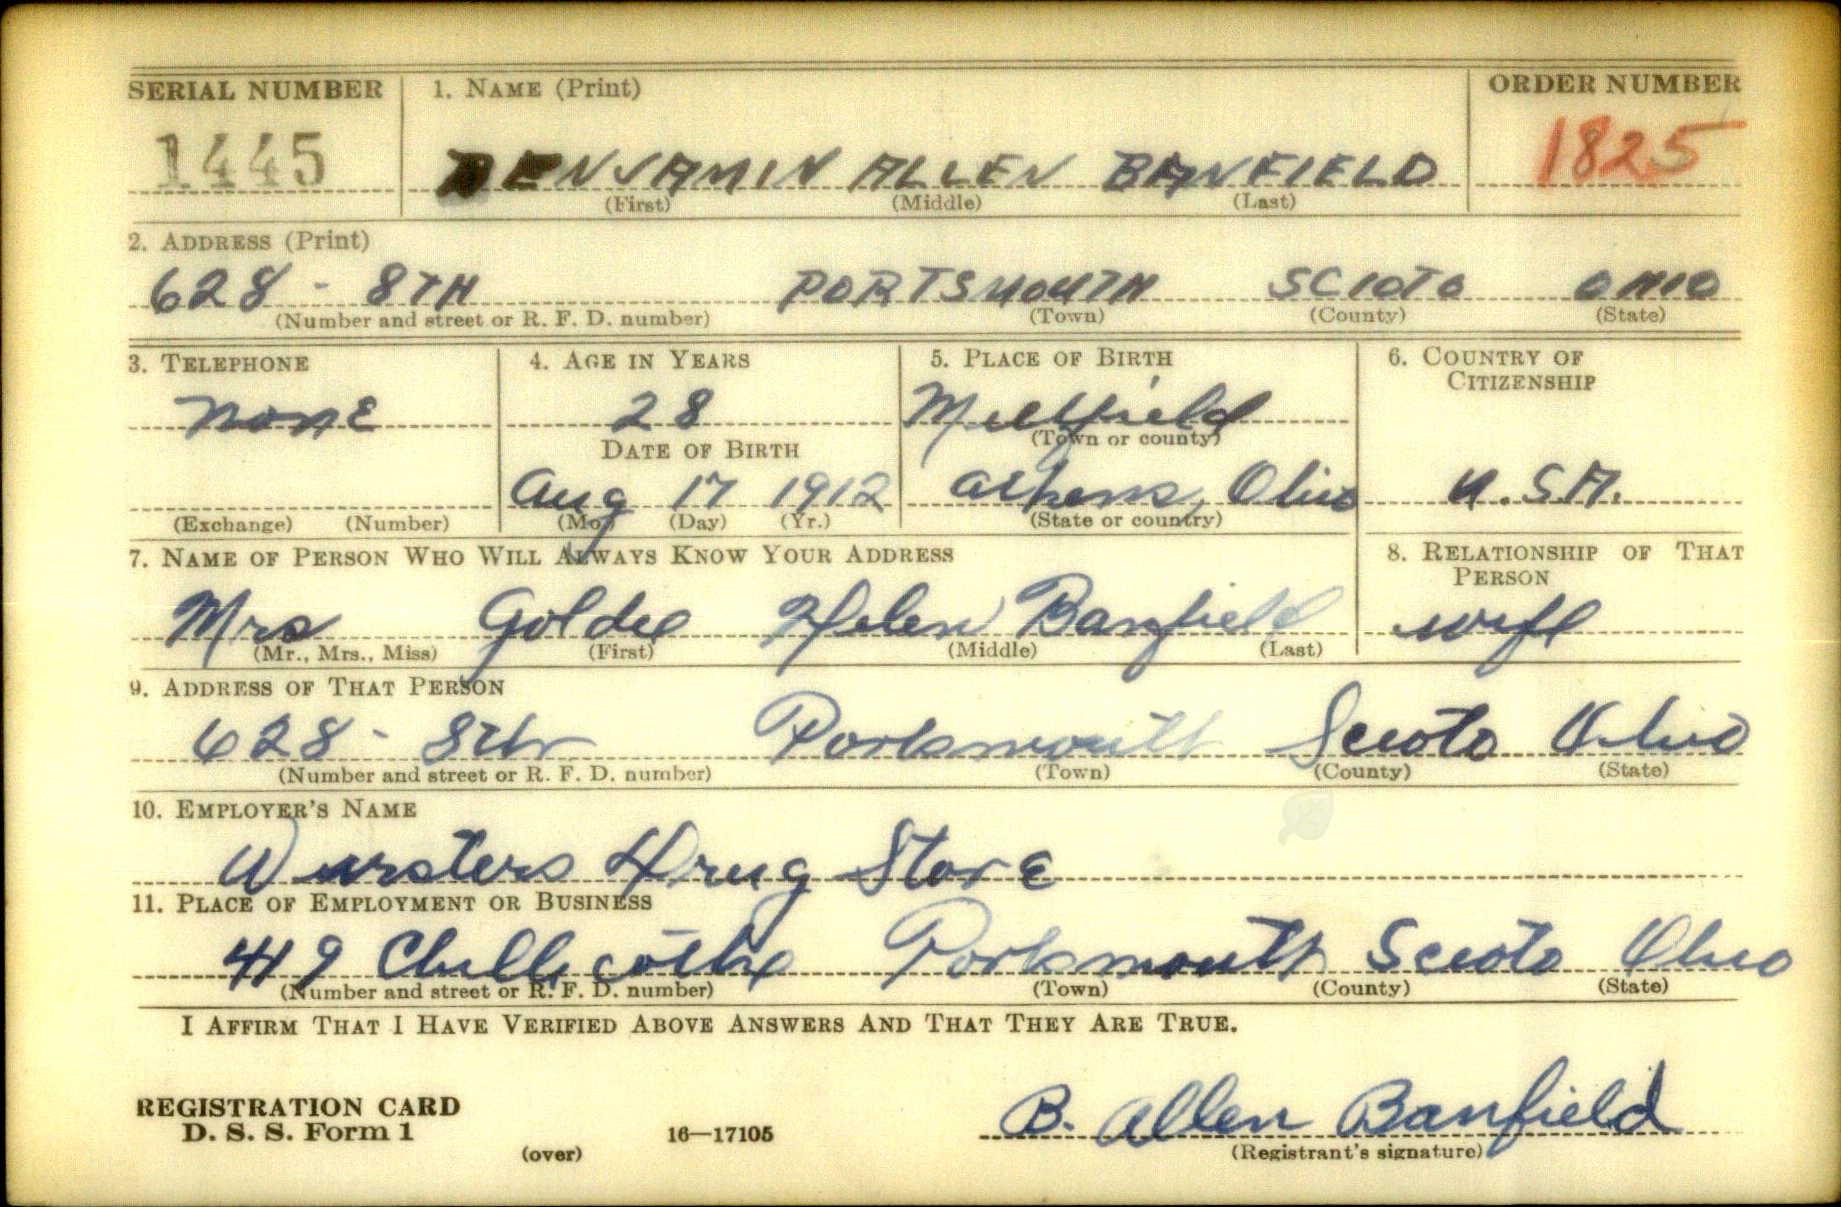 SERIAL NUMBER 1. NAME (Print) ORDER NUMBER
1445 BENJAMIN ALLEN BANFIELD 1825
(First) (Middle) (Last)
2. ADDRESS (Print)
628 - 8TH PORTSMOUTH SCIOTO OHIO
(Number and street or R. F. D. number) (Town) (County) (State)
3. TELEPHONE 4. AGE IN YEARS 5. PLACE OF BIRTH 6. COUNTRY OF CITIZENSHIP
none 28 Millfield
DATE OF BIRTH (Town or county)
Aug 17 1912 Athens, Ohio U.S.A.
(Exchange) (Number) (Mo.) (Day) (Yr.) (State or country)
7. NAME OF PERSON WHO WILL ALWAYS KNOW YOUR ADDRESS 8. RELATIONSHIP OF THAT PERSON
Mrs Goldie Helen Banfield wife
(Mr., Mrs., Miss) (First) (Middle) (Last)
9. ADDRESS OF THAT PERSON
628 - 8th Portsmouth Scioto Ohio
(Number and street or R. F. D. number) (Town) (County) (State)
10. EMPLOYER'S NAME
Wursters Drug Store
11. PLACE OF EMPLOYMENT OR BUSINESS
419 Chillicothe Portsmouth Scioto Ohio
(Number and street or R. F. D. number) (Town) (County) (State)
I AFFIRM THAT I HAVE VERIFIED ABOVE ANSWERS AND THAT THEY ARE TRUE.
REGISTRATION CARD
D. S. S. Form 1 16—17105 B. Allen Banfield
(over) (Registrant's signature)